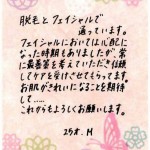 脱毛とフェイシャルで
通っています。
フェイシャルにおいては心配に
なった時期もありましたが、常
に最善策を考えていただき信頼
してケアを受けさせてもらってます。
お肌がきれいになることを期待
して……
これからもよろしくお願いします。
25才.M